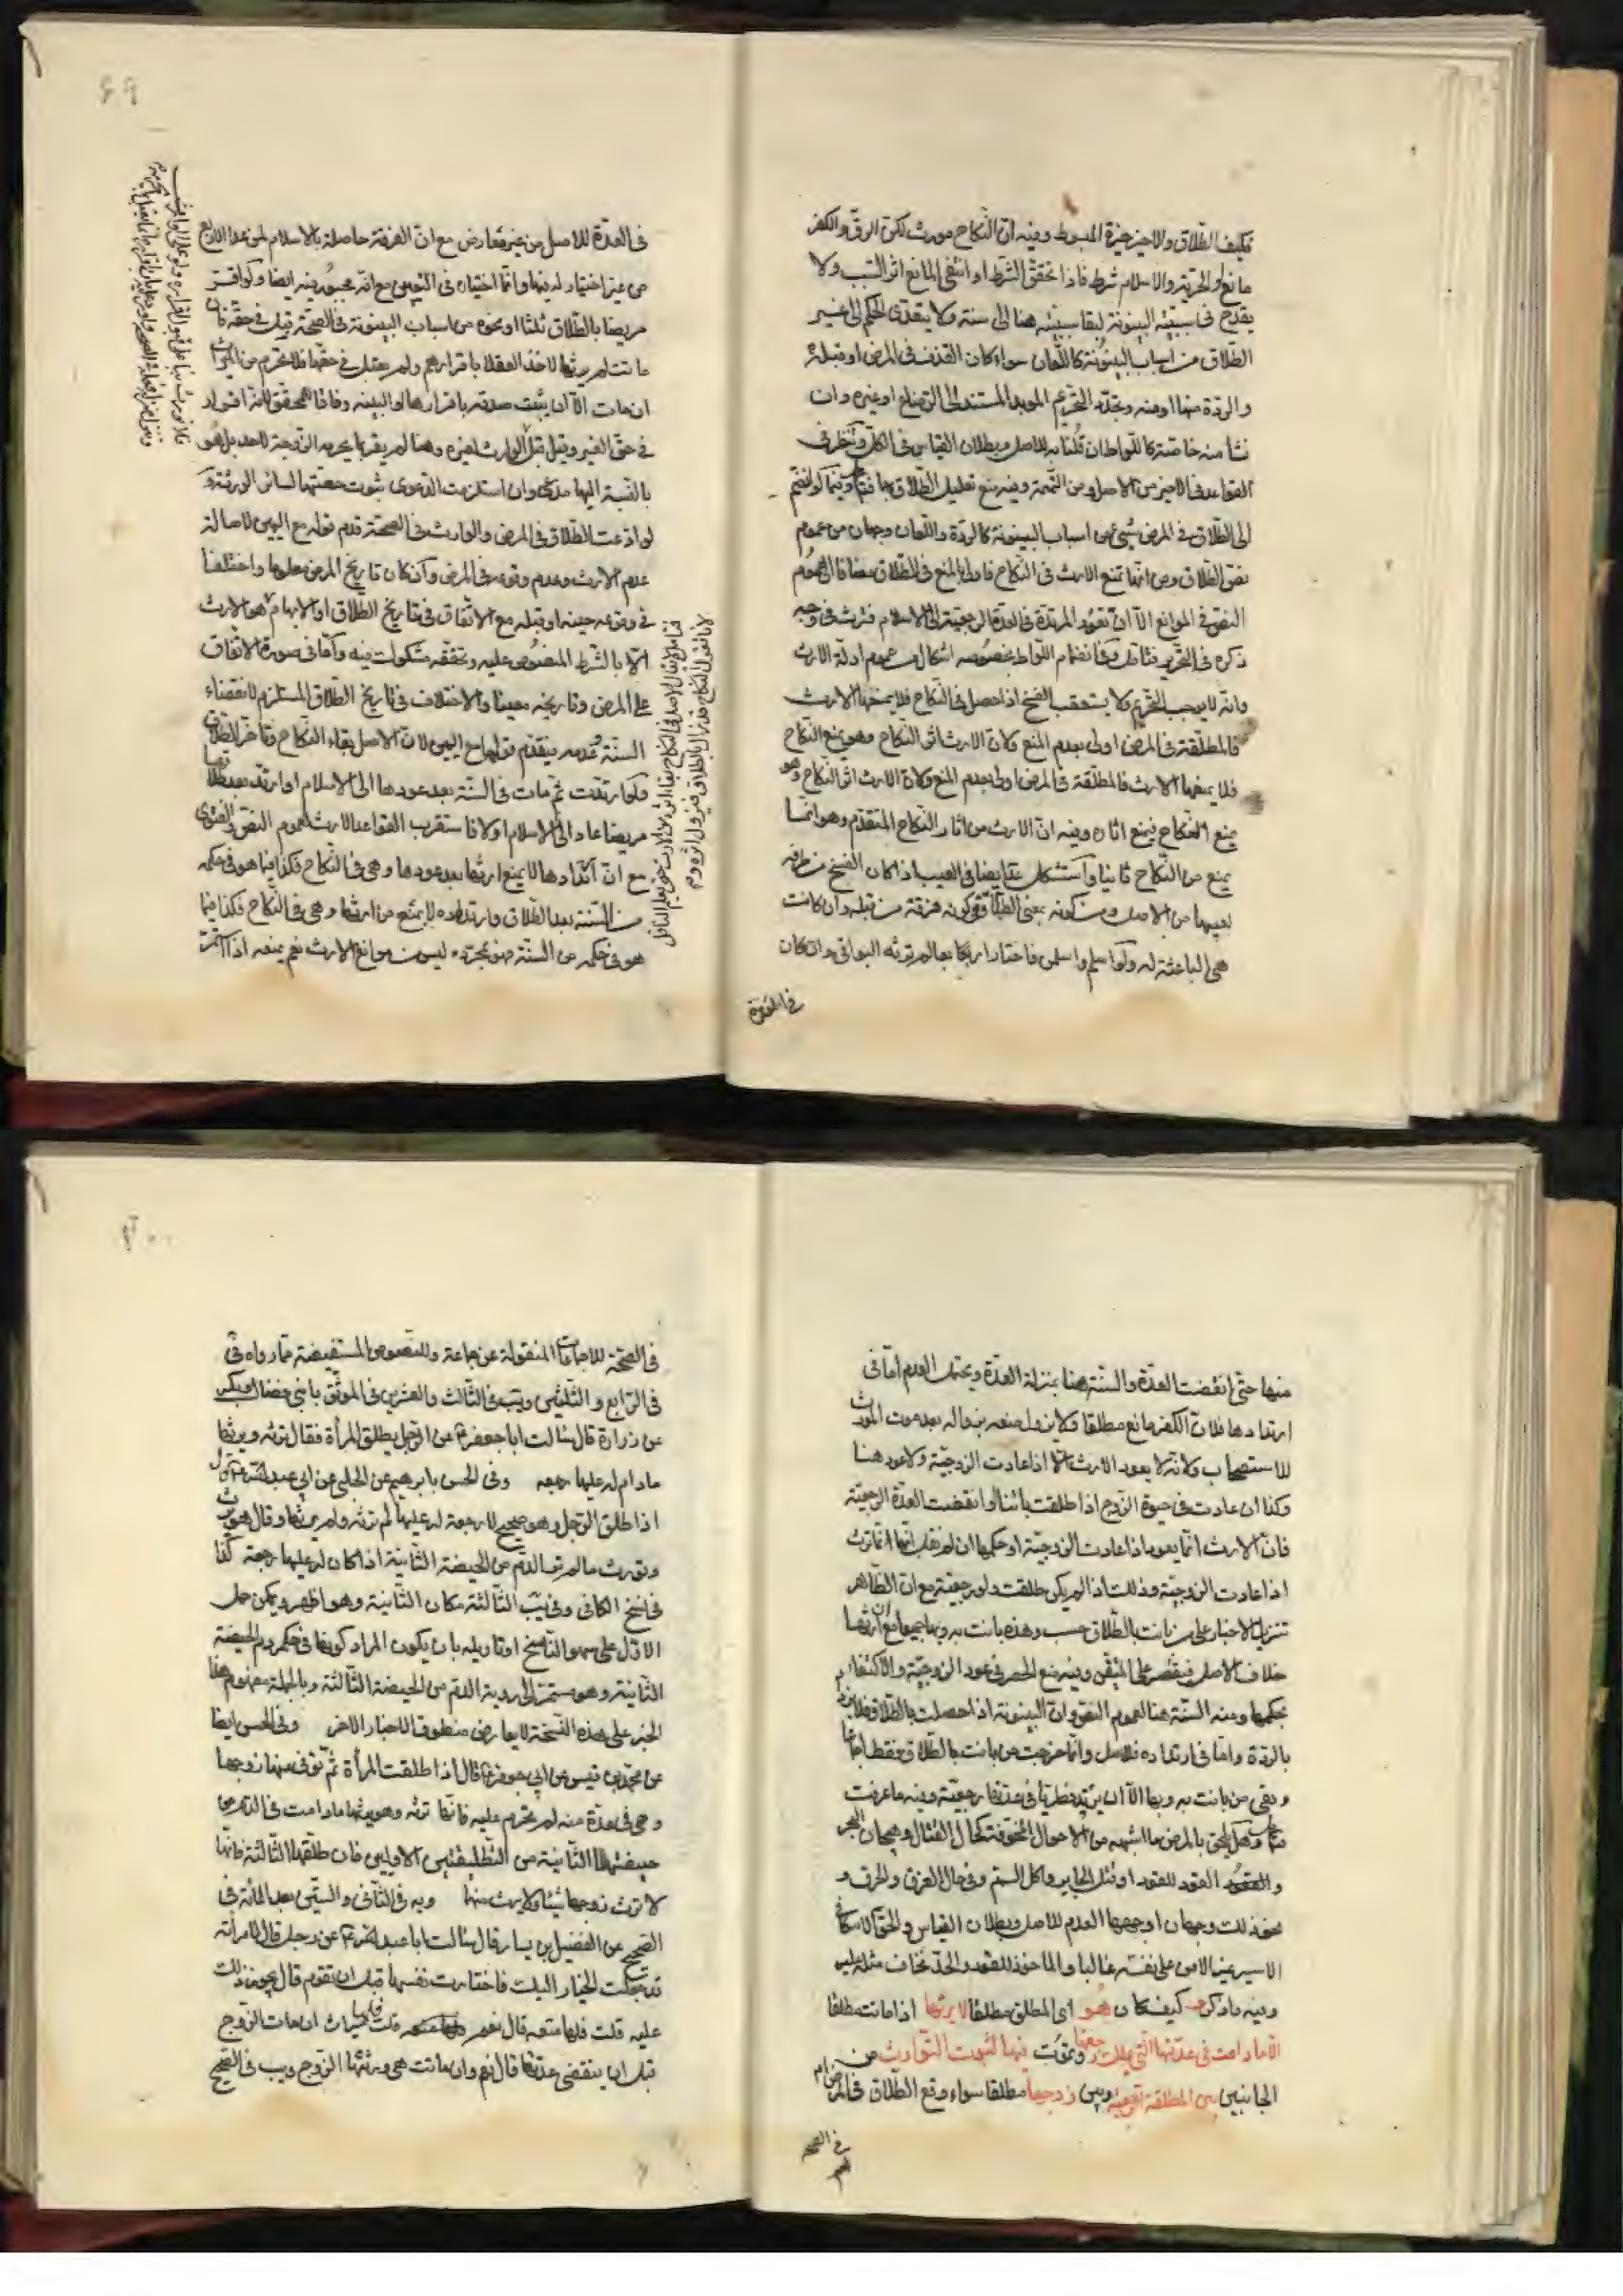 فكيف الطلاق والاخيرخيرة المبسوط وفيه ان النكاح مورث لكن الرق والكفر
مانع والحرية والاسلام شرط فاذا تحقق الشرط او انتفى المانع اثر السبب ولا
يقدح في سببيته البينونة لبقا سببيته هنا الى سنة ولا يتعدى الحكم الى غير
الطلاق من اسباب البينونة كاللعان سواء كان القذف في المرض او قبله
والردة منها او منه وتجدد التحريم الموبد المستند الى الرضاع او غيره وان
نشا منه خاصة كاللواط ان قلنا به للاصل وبطلان القياس في الكل ونظر في
القواعد في الاخير من الاصل ومن التهمة وفيه منع تعليل الطلاق بها وفيما لو انضم
الى الطلاق في المرض شيئ من اسباب البينونة كالردة واللعان وجهان من عموم
نص الطلاق ومن انها تمنع الارث في النكاح فاولى بالمنع في الطلاق مضافا الى عموم
النص في الموانع الا ان تعود المرتدة في العدة الرجعية الى الاسلام فترث في وجه
ذكره في التحرير فتامل وفي انضمام اللواط بخصوصه اشكال من عموم ادلة الارث
وانه لا يوجب التحريم ولا يستعقب الفسخ اذا حصل في النكاح فلا يمنعها الارث
فالمطلقة في المرض اولى بعدم المنع ولان الارث اثر النكاح وهو يمنع النكاح
فلا يمنعها الارث فالمطلقة في المرض اولى بعدم المنع ولان الارث اثر النكاح وهو
يمنع النكاح فيمنع اثاره وفيه ان الارث من اثار النكاح المتقدم وهو انما
يمنع من النكاح ثانيا واستشكل ايضا في العيب اذا كان الفسخ من طرفه
بعيبها من الاصل ومن كونه بمعنى الطلاق وكونه فرقة من قبله وان كانت
هي الباعثة له ولو اسلم واسلمن فاختار اربعا بعا لم ترثه البواقي وان كان
في العدة
في العدة للاصل من غير معارض مع ان الفرقة حاصلة بالاسلام لمن عدا الاربع
من غير اختيار له فيها وانما اختياره في التعيين مع انه مجبور فيه ايضا ولو اقر
مريضا بالطلاق ثلثا او نحوه من اسباب البينونة في الصحة قبل في حقه فان
ماتت لم يرثها لاخذ العقلا باقرارهم ولم يقبل في حقها فلا تحرم من الميراث
ان مات الا ان يثبت صدقه باقرارها او البينة وفاقا للمحقق لانه اقرار
في حق الغير وقيل قبل الوارث لغيره وهنا لم يقر بما يحرمه الزوجة لاحد بل هو
بالنسبة اليها مدعي وان استلزمت الدعوى ثبوت حصتها لسائر الورثة و
لو ادعت الطلاق في المرض والوارث في الصحة قدم قوله مع اليمين لاصالة
عدم الارث وعدم وقوعه في المرض وان كان تاريخ المرض معلوما واختلفا
في وقوعه حينه او قبله مع الاتفاق في تاريخ الطلاق او الابهام هو الارث
الا بالشرط المنصوص عليه وتحققه مشكوك فيه واما في صورة الاتفاق
على المرض وتاريخه معينا والاختلاف في تاريخ الطلاق المستلزم لانقضاء
السنة وعدمه فيقدم قولها مع اليمين لان الاصل بقاء النكاح وتاخر الطلاق
فلو ارتدت ثم مات في السنة بعد عودها الى الاسلام او ارتد بعد طلاقها
مريضا عاد الى الاسلام او لا فاستقرب القواعد الارث لعموم النص والفتوى
مع ان ارتدادها لا يمنع ارثها بعد عودها وهي في النكاح فكذا فيما هو في حكمه
من السنة بعد الطلاق وارتداده لا يمنع من ارثها وهي في النكاح فكذا فيما
هو في حكمه من السنة فهو بمجرده ليس من موانع الارث نعم يمنعه اذا استمر
منها حتى انقضت العدة والسنة هنا بمنزلة العدة ويحتمل العدم اما في
ارتدادها فلان الكفر مانع مطلقا ولا يزول منعه بزواله بعد موت المورث
للاستصحاب ولانه لا يعود الارث الا اذا عادت الزوجية ولا عود هنا
وكذا ان عادت في حيوة الزوج اذا طلقت بائنا او انقضت العدة الرجعية
فان الارث انما يعود اذا عادت الزوجية او حكمها ان لم نقل انها انما ترث
اذا عادت الزوجية وذلك اذا لم يكن طلقت ولو رجعية مع ان الظاهر
تنزيل الاخبار على من بانت بالطلاق حسب وهذه بانت به وبها جميعا مع ان ارثها
خلاف الاصل فيقتصر على المتيقن وفيه منع الحصر في عود الزوجية والاكتفاء
بحكمها ومنه السنة هنا لعموم النص وان البينونة اذا حصلت بالطلاق فلا
بالردة واما في ارتداده فللاصل وانما خرجت من بانت بالطلاق فقط اجماعا
وبقي من بانت به وبها الا ان يرتد فطريا في عدتها رجعية وفيه ما عرفت
وهل يلحق بالمرض ما اشبهه من الاحوال المخوفة كحال القتال وهيجان البحر
والقعود القود للقود او نقل الجابر واكل السم وفي حال الغرق والحرق و
نحو ذلك وجهان اوجههما العدم للاصل وبطلان القياس والحق الاسكافي
الاسير غير الامن على نفسه غالبا والماخوذ للقود والحد يخاف مثله عليه
وفيه ما ذكر كيف كان هو اي المطلق مطلقا لا يرثها اذا ماتت مطلقا
الا ما دامت في عدتها التي يملك رجعتها وتموت فيها لثبوت التوارث من
الجانبين بين المطلقة الرجعية وبين زوجها مطلقا سواء وقع الطلاق في المرض ام
في الصحة
في الصحة للاجماعات المنقولة عن جماعة وللنصوص المستفيضة مما رواه في
في الرابع والثلثين ويب في الثالث والعشرين في الموثق بابني فضال وبكير
عن زرارة قال سالت ابا جعفر ع عن الرجل يطلق المرأة فقال ترثه ويرثها
مادام له عليها رجعة وفي الحسن بابرهيم عن الحلبي عن ابي عبد الله ع قال
اذا طلق الرجل وهو صحيح لا رجعة له عليها لم ترثه ولم يرثها وقال هو يرث
ويورث ما لم تر الدم من الحيضة الثانية اذا كان له عليها رجعة كذا
في نسخ الكافي وفي يب الثالثة مكان الثانية وهو اظهر ويمكن حمل
الاول على سهو الناسخ او تاويله بان يكون المراد كونها في حكم دم الحيضة
الثانية وهو مستمر الى رؤية الدم من الحيضة الثالثة وبالجملة مفهوم هذا
الخبر على هذه النسخة لا يعارض منطوق الاخبار الاخر وفي الحسن ايضا
عن محمد بن قيس عن ابي جعفر ع قال اذا طلقت المرأة ثم توفي عنها زوجها
وهي في عدة منه لم تحرم عليه فانها ترثه وهو يرثها مادامت في الدم من
حيضتها الثانية من التطليقتين الاوليين فان طلقها الثالثة فانها
لا ترث زوجها شيئا ولا يرث منها ويه في الثاني والستين بعد المائة في
الصحيح عن الفضيل بن يسار قال سالت ابا عبد الله ع عن رجل قال لامراته
قد جعلت الخيار اليك فاختارت نفسها قبل ان تقوم قال يجوز ذلك
عليه قلت فلها متعة قال نعم قلت فلها ميراث ان مات الزوج
قبل ان ينقضي عدتها قال نعم وان ماتت هي ورثها الزوج ويب في الصحيح